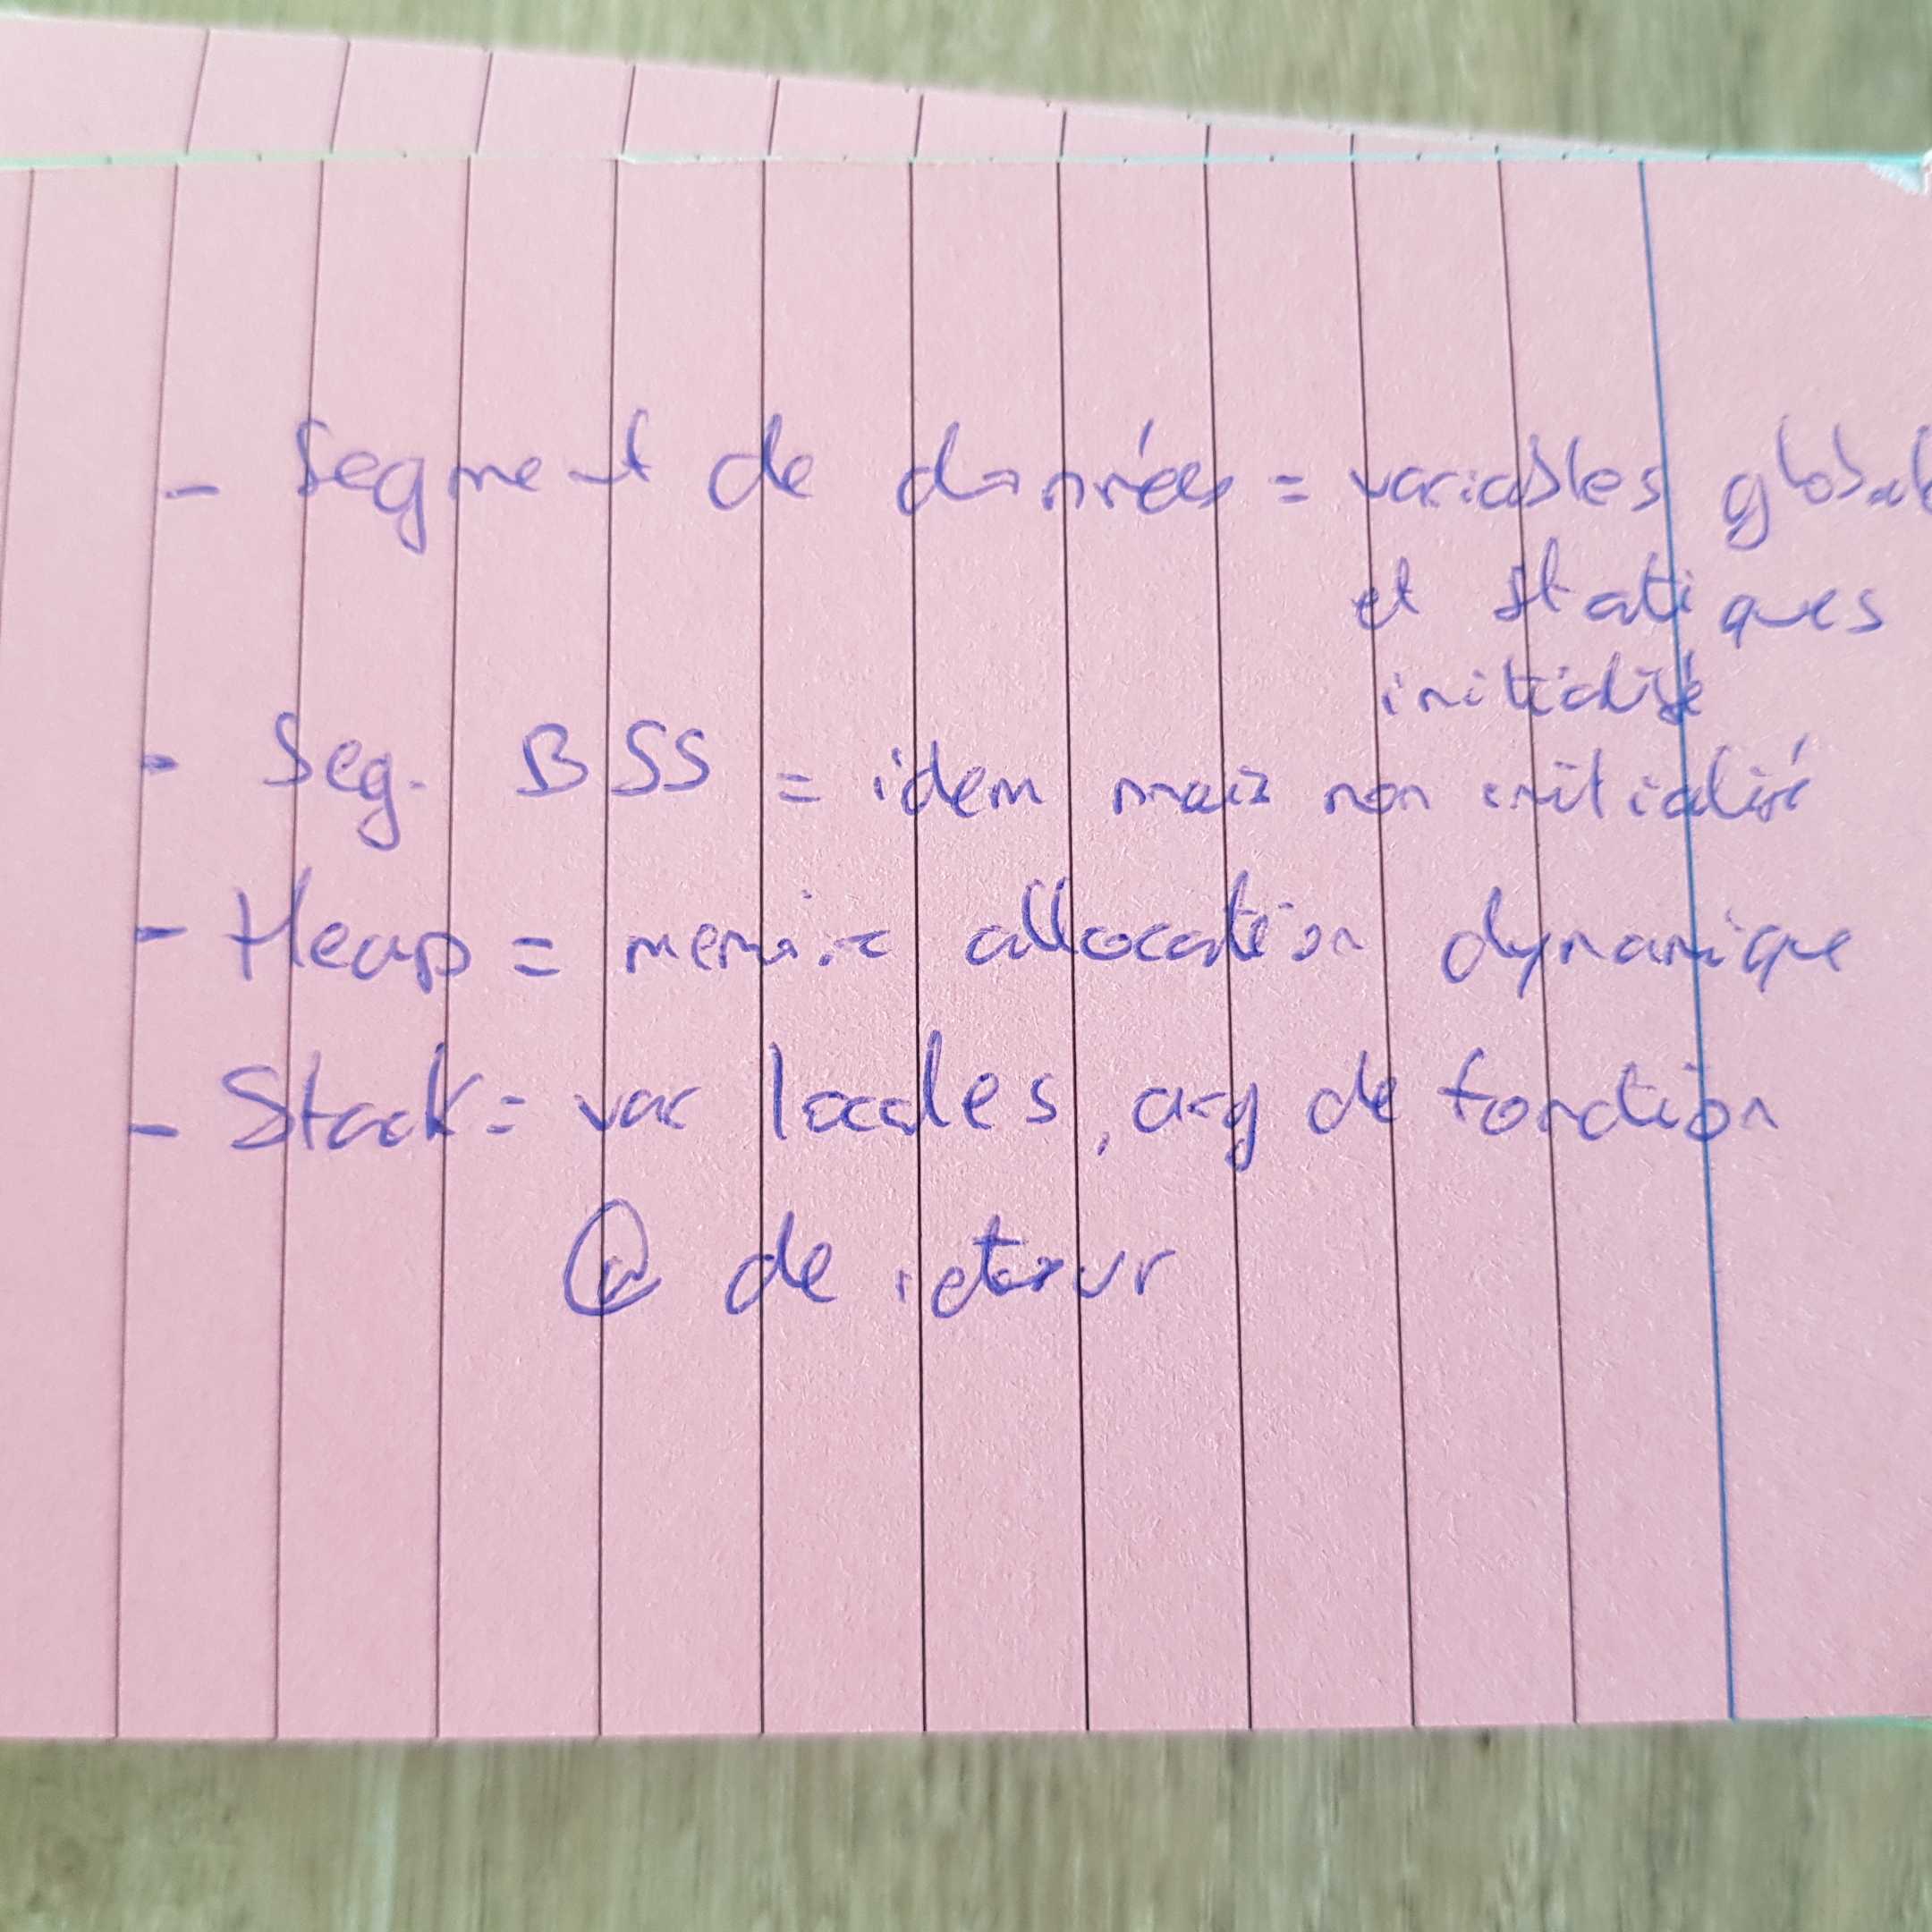 - Segment de données = variables global
et statiques
initialisé
- Seg. BSS = idem mais non initialisé
- Heap = memoire allocation dynamique
- Stack = var locales, arg de fonction
@ de retour